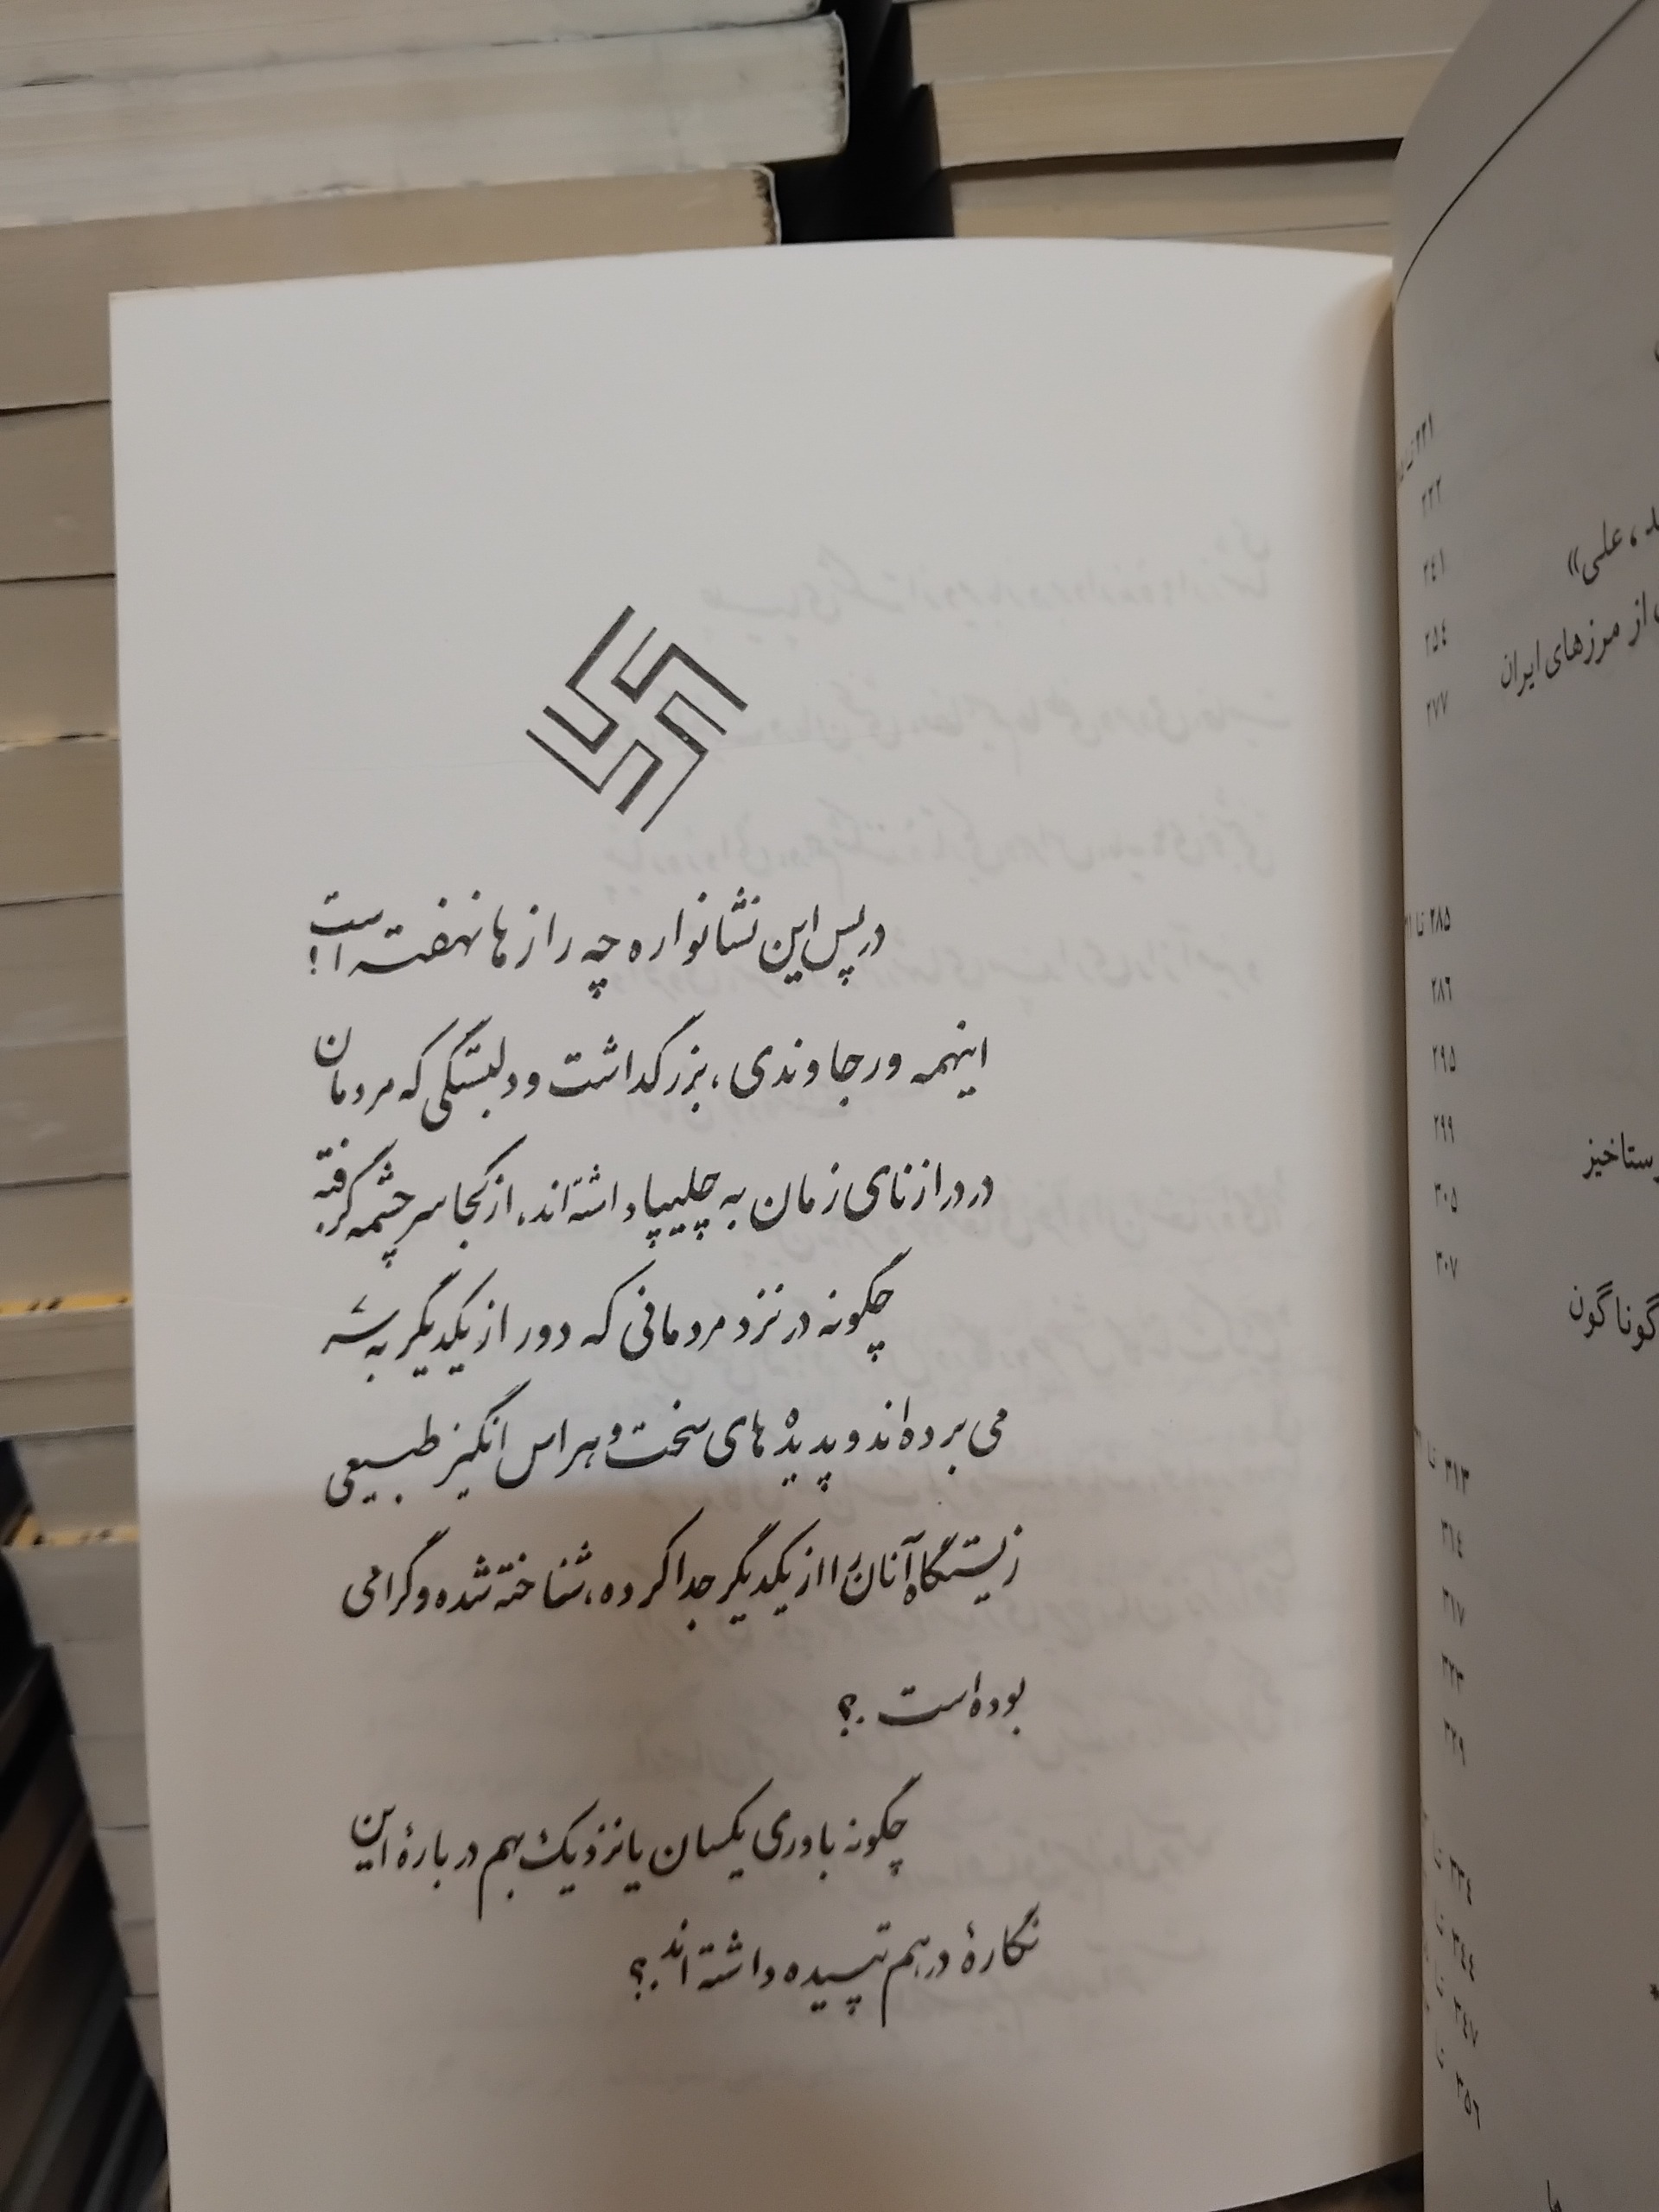 در پس این نشانواره چه رازها نهفته است!
اینهمه ورجاوندی، بزرگداشت و دلبستگی که مردمان
در درازنای زمان به چلیپا داشته‌اند، از کجا سرچشمه گرفته
چگونه در نزد مردمانی که دور از یکدیگر به سر
می برده‌اند و پدیده‌های سخت و هراس انگیز طبیعی
زیستگاه آنان را از یکدیگر جدا کرده، شناخته شده و گرامی
بوده است.؟
چگونه باوری یکسان یا نزدیک بهم درباره این
نگارهٔ درهم تپیده داشته‌اند.؟
۲۲۲
۲٤۱
، علی»
۲۵٤
از مرزهای ایران
۲۷۷
۲۸۵ تا
۲۸٦
۲۹۵
۲۹۹
ستاخیز
۳۰۵
۳۰۷
گوناگون
۳۱۳ تا
۳۱٤
۳۱۷
۳۲۳
۳۲۹
۳۳٤ تا
۳٤٤ تا
۳٤۷ تا
۳۵٦
ها